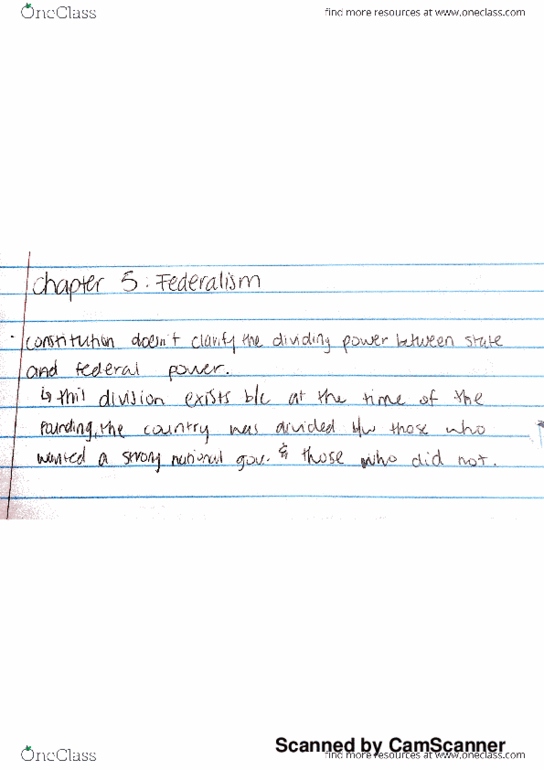 OneClass
find more resources at www.oneclass.com
Chapter 5: Federalism
· Constitution doesn't clarify the dividing power between state
and federal power.
↳ this division exists b/c at the time of the
founding, the country was divided b/w those who
wanted a strong national gov. & those who did not.
Scanned by CamScanner
OneClass
find more resources at www.oneclass.com